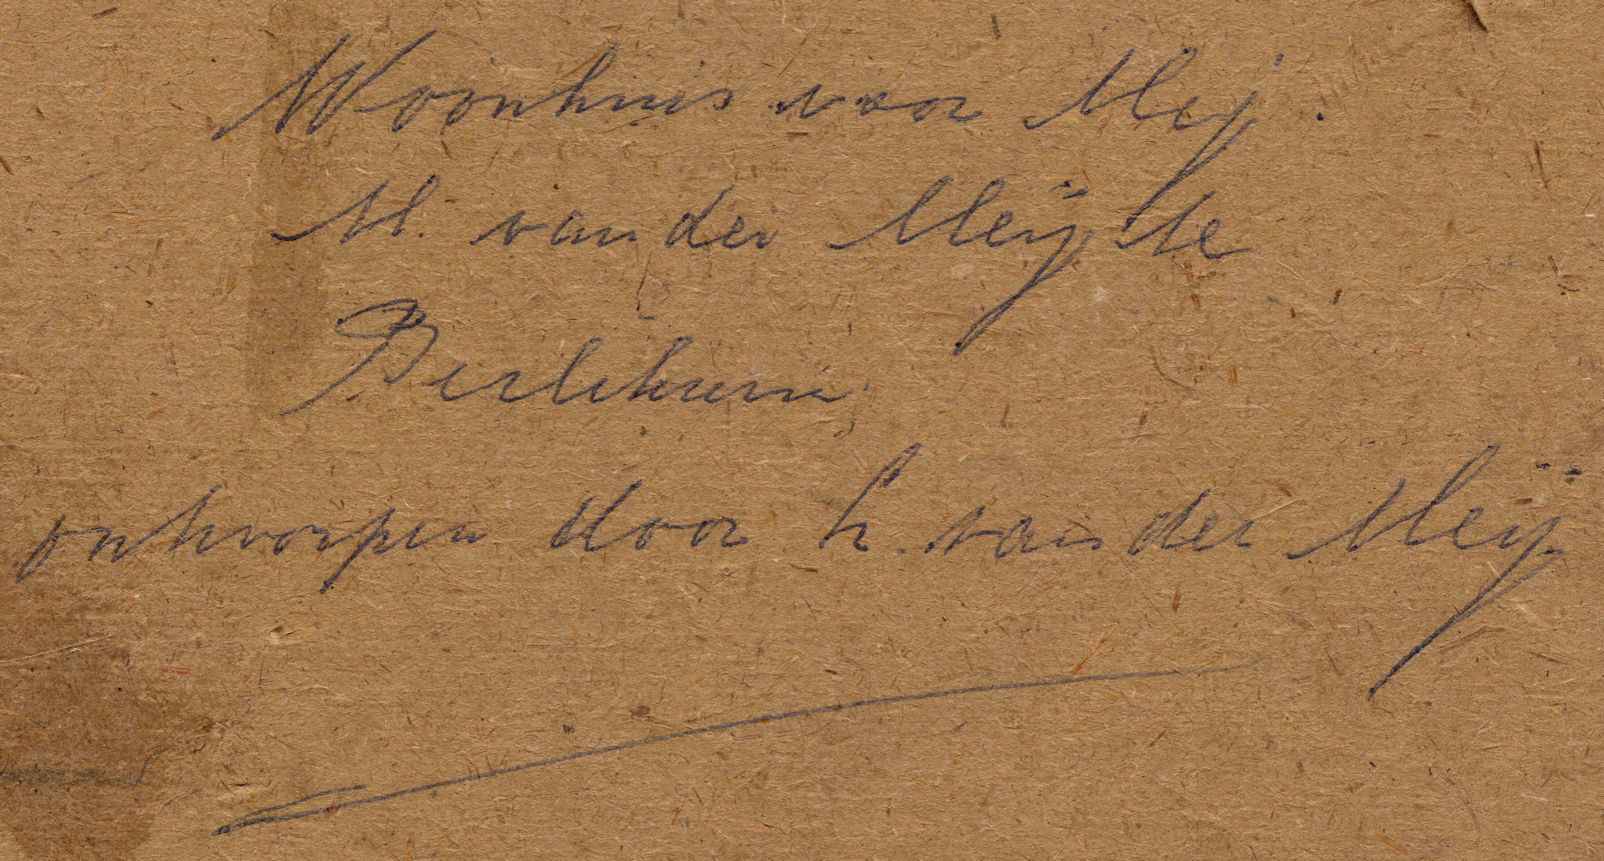 Woonhuis voor Mej.
M. van der Meij te
Berlikum
ontworpen door h. van der Meij